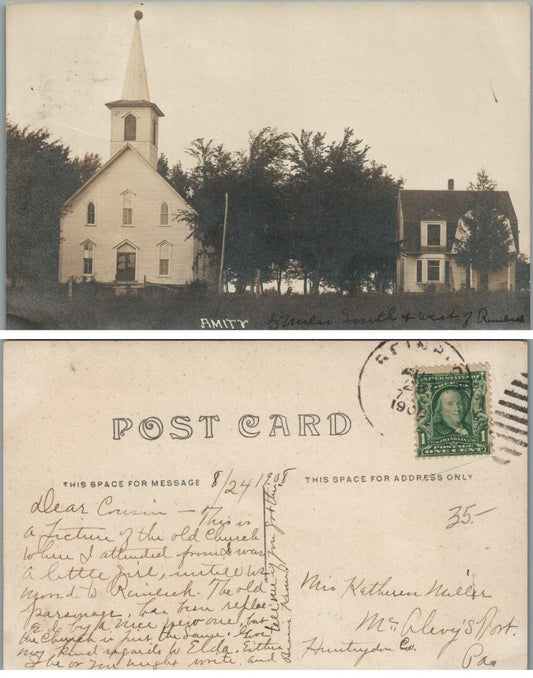 AMITY 5 Miles South & West of Reinbeck
POST CARD
THIS SPACE FOR MESSAGE 8/24 1908 THIS SPACE FOR ADDRESS ONLY
REINB
190
U.S. POSTAGE
FRANKLIN
1 1
POSTAGE
ONE CENT
35-
Dear Cousin - This is
a picture of the old church
where I attended from I was
a little girl, untill we
moved to Reinbeck. The old
parsonage, has been replac-
ed by a nice new one, but
the Church is just the same. Give
my kind regards to Elda. Either
She or you might write, and
tell me if you got the
Mrs Katheren Miller
Mc Alevy's Fort.
Huntingdon Co.
Pa